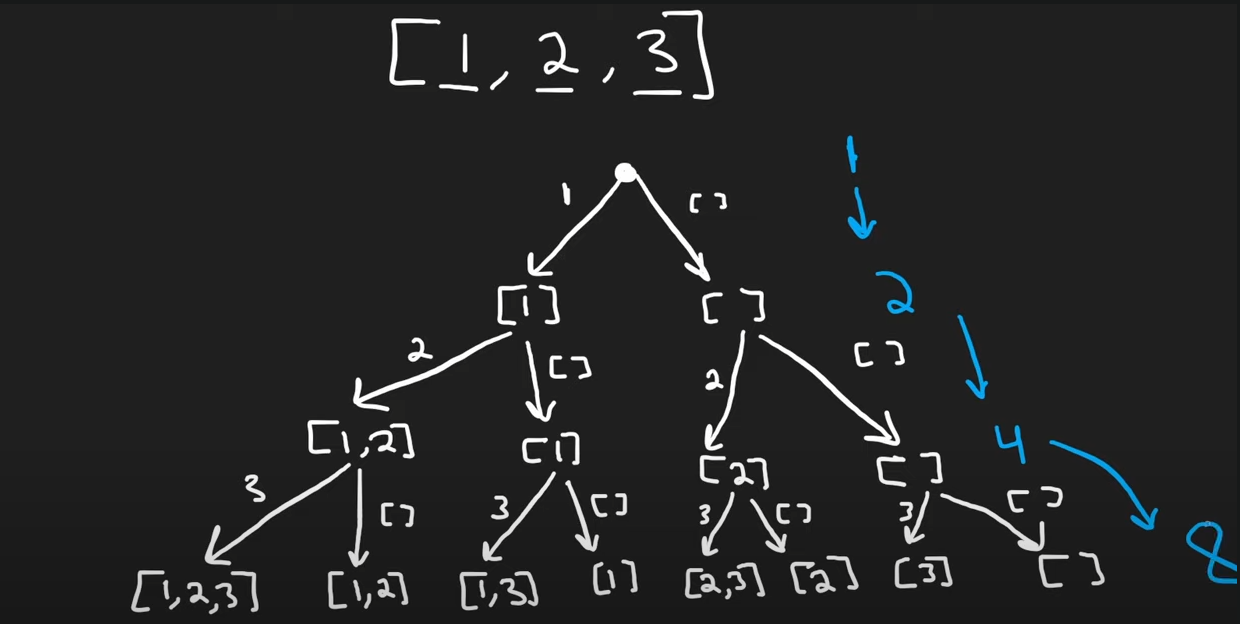 [1, 2, 3]
1 [ ] 1
[1] [ ] 2
2 [ ] 2 [ ]
[1,2] [1] [2] [ ] 4
3 [ ] 3 [ ] 3 [ ] 3 [ ]
[1,2,3] [1,2] [1,3] [1] [2,3] [2] [3] [ ] 8